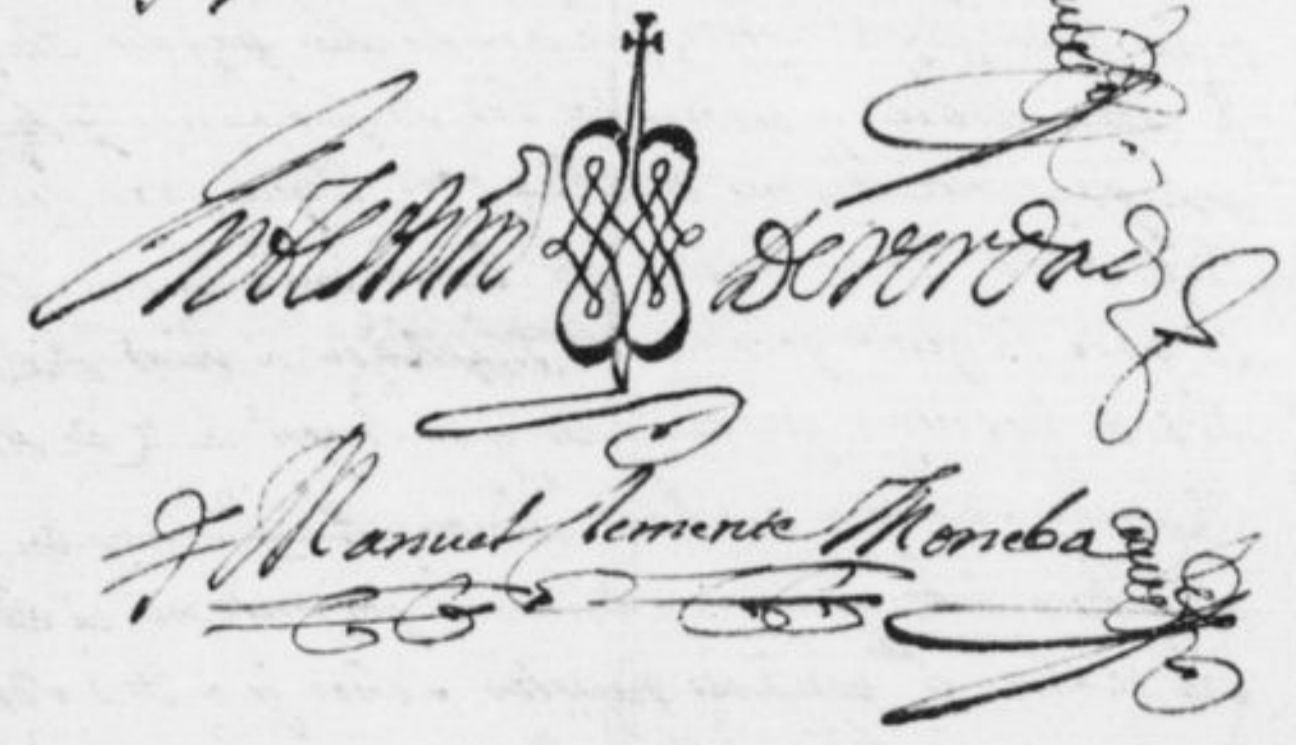 En testimº de verdad
Manuel Clemente Moneba